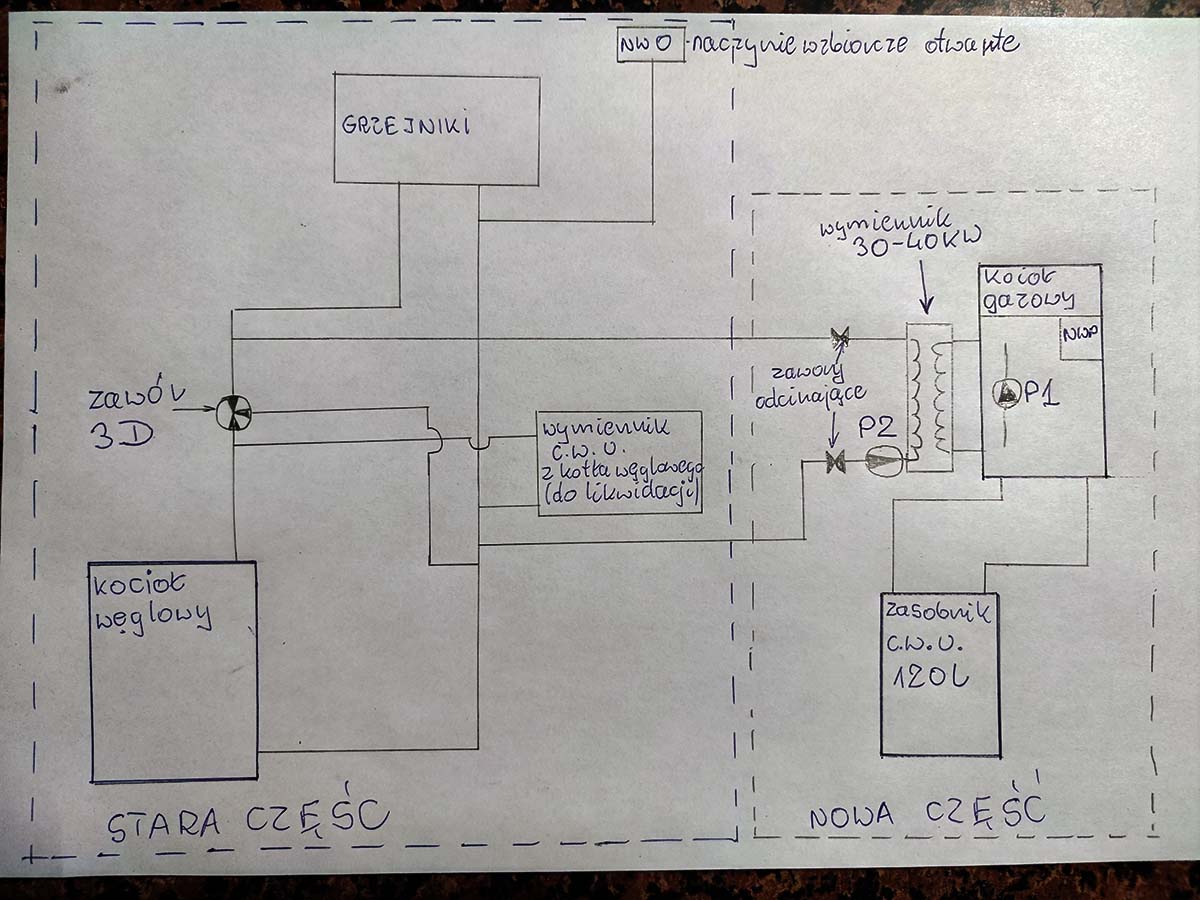 NWO - naczynie wzbiorcze otwarte
GRZEJNIKI
wymiennik
30-40KW
kocioł
gazowy
NWP
P1
zawory
odcinające
P2
zawór
3D
wymiennik
C.W.U.
z kotła węglowego
(do likwidacji)
kocioł
węglowy
zasobnik
C.W.U.
120L
STARA CZĘŚĆ
NOWA CZĘŚĆ